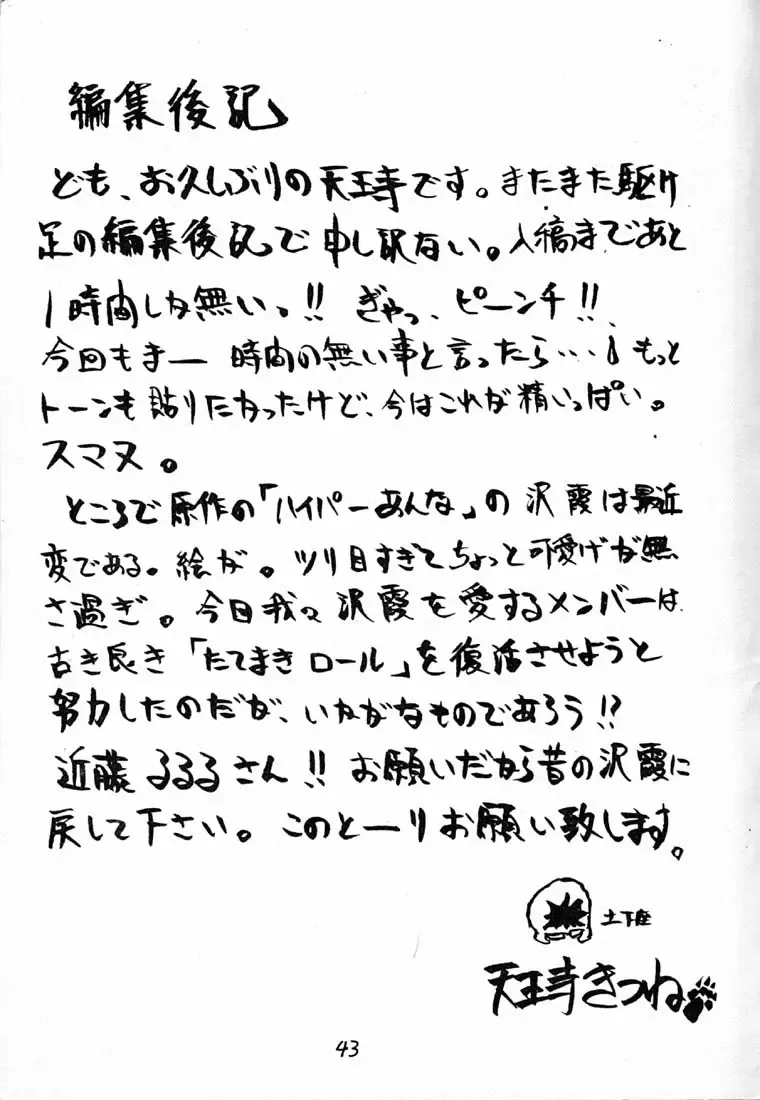 編集後記
ども、お久しぶりの天王寺です。またまた駆け
足の編集後記で申し訳ない。入稿まであと
1時間しか無いっ!! ぎゃっ、ピーンチ!!
今回もまー時間の無い事と言ったら…! もっと
トーンも貼りたかったけど、今はこれが精いっぱい。
スマヌ。
ところで原作の「ハイパーあんな」の沢霞は最近
変である。絵が。ツリ目すぎてちょっと可愛げが無
さ過ぎ。今回我々沢霞を愛するメンバーは
古き良き「たてまきロール」を復活させようと
努力したのだが、いかがなものであろう!?
近藤るるるさん!! お願いだから昔の沢霞に
戻して下さい。このとーりお願い致します。
土下座
天王寺きつね
43